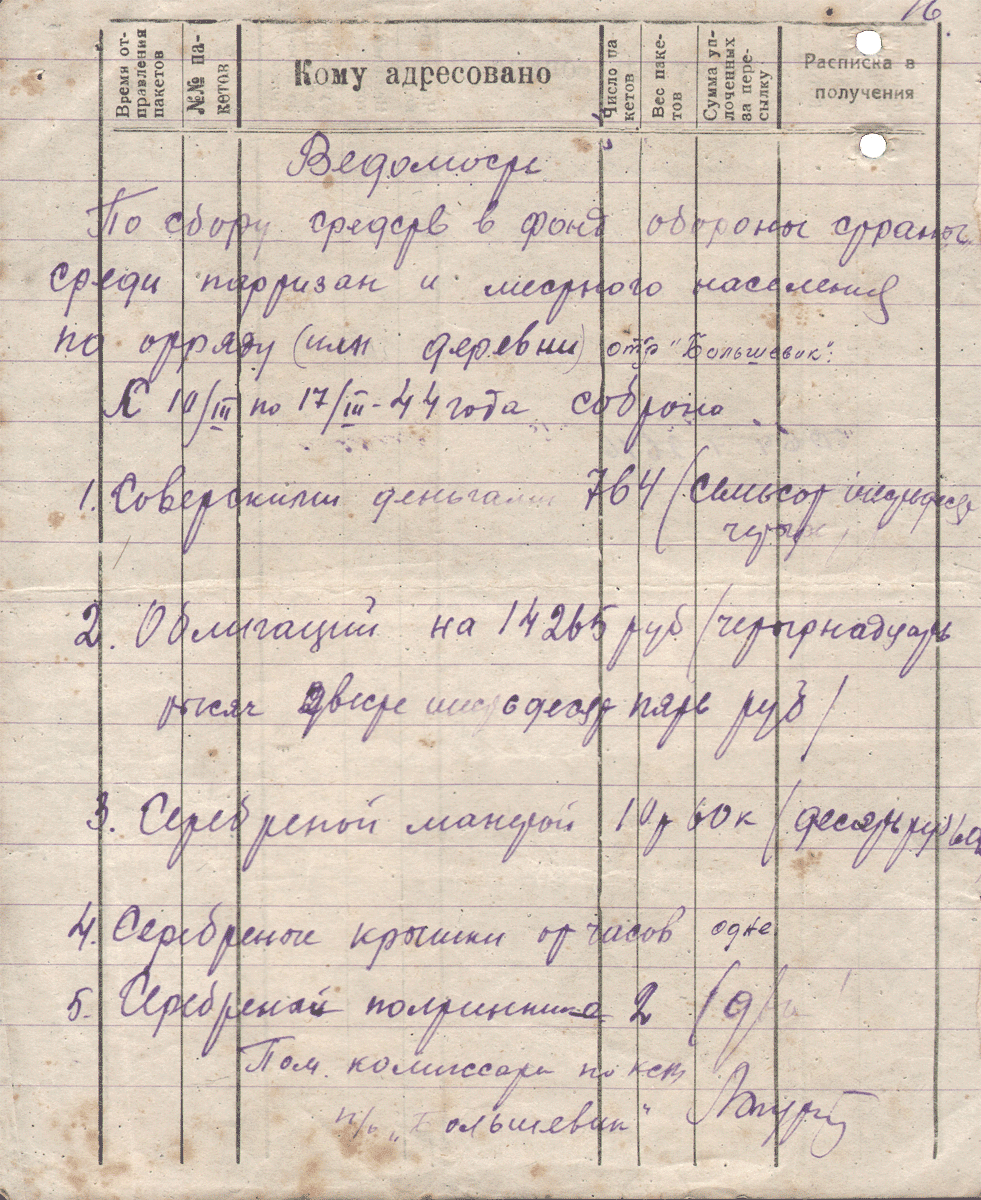 16
Времи от-
правления
пакетов
№№ па-
кетов
Кому адресовано
Число па
кетов
Вес паке-
тов
Сумма уп-
лоченных
за пере-
сылку
Расписка в
получения
Ведомость
По сбору средств в фонд обороны страны
среди партизан и местного населения
по отряду (или деревни) отр "Большевик".
С 10/III по 17/III - 44 года собрано
1. Советскими деньгами 764 (семьсот шестьдесят
четыре)
2. Облигаций на 14265 руб (четырнадцать
тысяч двести шестьдесят пять руб)
3. Серебреной манетой 10р 60к (десять рубль
4. Серебреные крышки от часов одне
5. Серебреной полтинника 2 (два)
Пом. комиссара по ксм
п/о "Большевик"